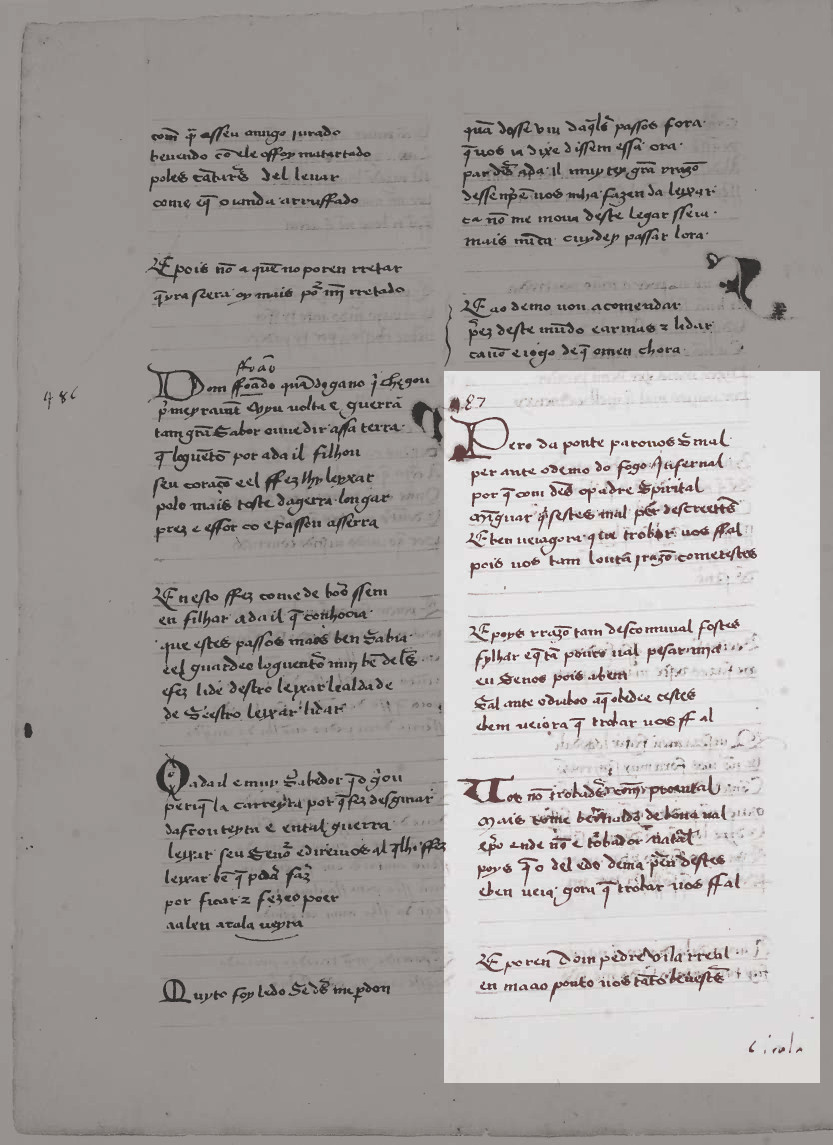 com̄ q̄ asseu amigo jurado
bevendo cō ele offoy matartado
poles cātar̄s del levar
come eq̄ ouanda arruffado
E pois nō a quē no poren rretar
q̄yra seera oy mais por mī rretado
486
ffoāo
Dom ffoāo quādogano i chegou
p̄meyramt̄ E vyu volta e guerra
tam grā Sabor ouve dir assa terra
q̄ loguētō por adail filhou
seu coraçō e el ffez lhy leyxar
polo mais toste dagerra longar
prez e esforço e passou asserra
En esto ffez come de boō ssem
en filhar adail q̄ conhocia
que estes passos maos ben Sabia
e el guardeo loguentō muy bē delēs
e fez lide destro leyxar lealdade
de Seestro leyxar lidar
O adail e muy Sabedor q̄ o guou
per aq̄la carreyra por q̄ fez desguiar
da fronteyra e en tal guerra
leyxar seu Senōr e direivos al q̄lhi ffez
leyxar bē q̄ poda faz
por ficar z fezeo poer
aalen a tala veyra
Muyto foy ledo Se ds̄ me pdon
quā dosse viu daq̄les passos fora
q̄ vos ia dixe dissem essa ora
par dēs adail muytey grā rrazō
dessenpre vos mha fazenda leyxar
ca nō me mova deste logar sseia
mais nūca cuydey passar lora
E ao demo vou acomendar
prez deste mūdo e armas z lidar
ca nō e jogo de q̄ omen chora
487
Pero da ponte paro uos Smal
per ante odemo do fogo ĩfernal
por q̄ com dēs opadre Spirital
mĩguar q̄sestes mal per descreestēs
E ben veiagora que trobar vos ffal
pois vos tam louca razō cometestes
E poys rrazō tam descomuual fostes
fylhar e q̄ tā pouco val pesar mia
en Senos pois abem
Sal ante odiaboo aq̄ obedeecestes
e bem veiora q̄ trobar vos ffal
Vos nō trobades comj proental
mais come bernaldo de bona val
epō ende nō e trobador natal
poys q̄ o del e do dema prendestes
e ben vei agora q̄ trobar vos ffal
E poren Dom pedre Vila rreal
en maao ponto vos tāto bevestes
cirola